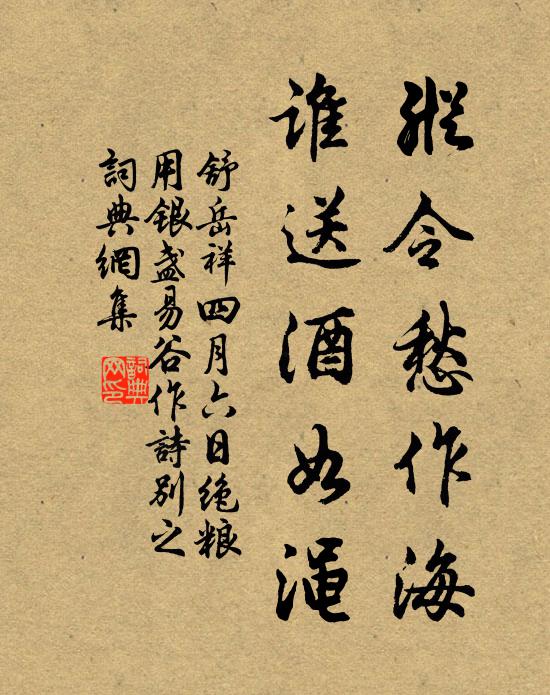 縱令愁作海
誰送酒如渑
舒岳祥四月六日绝粮
用银盏易谷作詩别之
詞典網集
詞典網印